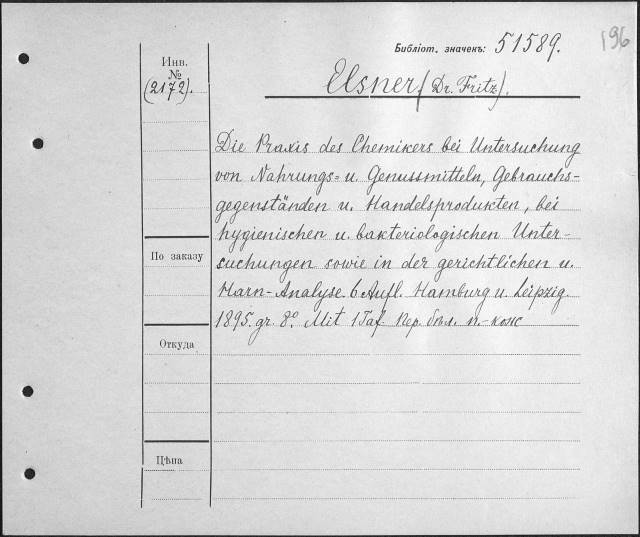 196
Библіот. значекъ: 51589.
Инв.
№
(2172).
Elsner (Dr. Fritz).
Die Praxis des Chemikers bei Untersuchung
von Nahrungs= u. Genussmitteln, Gebrauchs-
gegenständen u. Handelsprodukten, bei
hygienischen u. bakteriologischen Unter-
suchungen sowie in der gerichtlichen u.
Harn-Analyse. 6 Aufl. Hamburg u. Leipzig.
1895. gr. 8º. Mit 1 Taf. Пер. бѣл. п.-кож
По заказу
Откуда
Цѣна